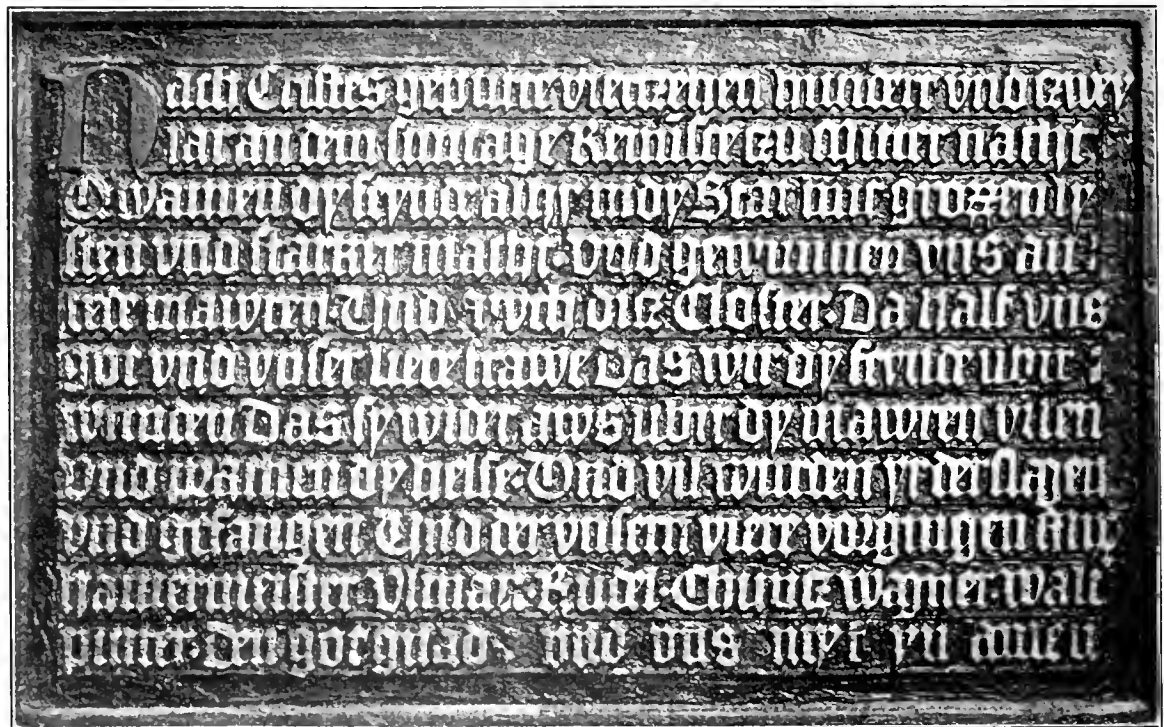 Nach Cristes gepurte vierczehen hundert vnd czwey
Jar an dem suntage Reminiscere czu Mitter nacht
Qwamen dy feynde alhy in dy Stat mit grozzen ly
sten vnd starker macht· Vnd gewunnen vns an
der mawren· Vnd auch dicz Closter· Da half vns
got vnd vnser liebe frawe Das wir dy feynde ubir
wunden Das sy wider aws ubir dy mawren vilen
Vnd brachen dy helse· Vnd vil wurden yr derslagen
vnd gefangen Vnd der vnsern viere vorgingen
Vlman· Rudel· Chuncz Wagner·
den got gnad vnd vns myt yn allen